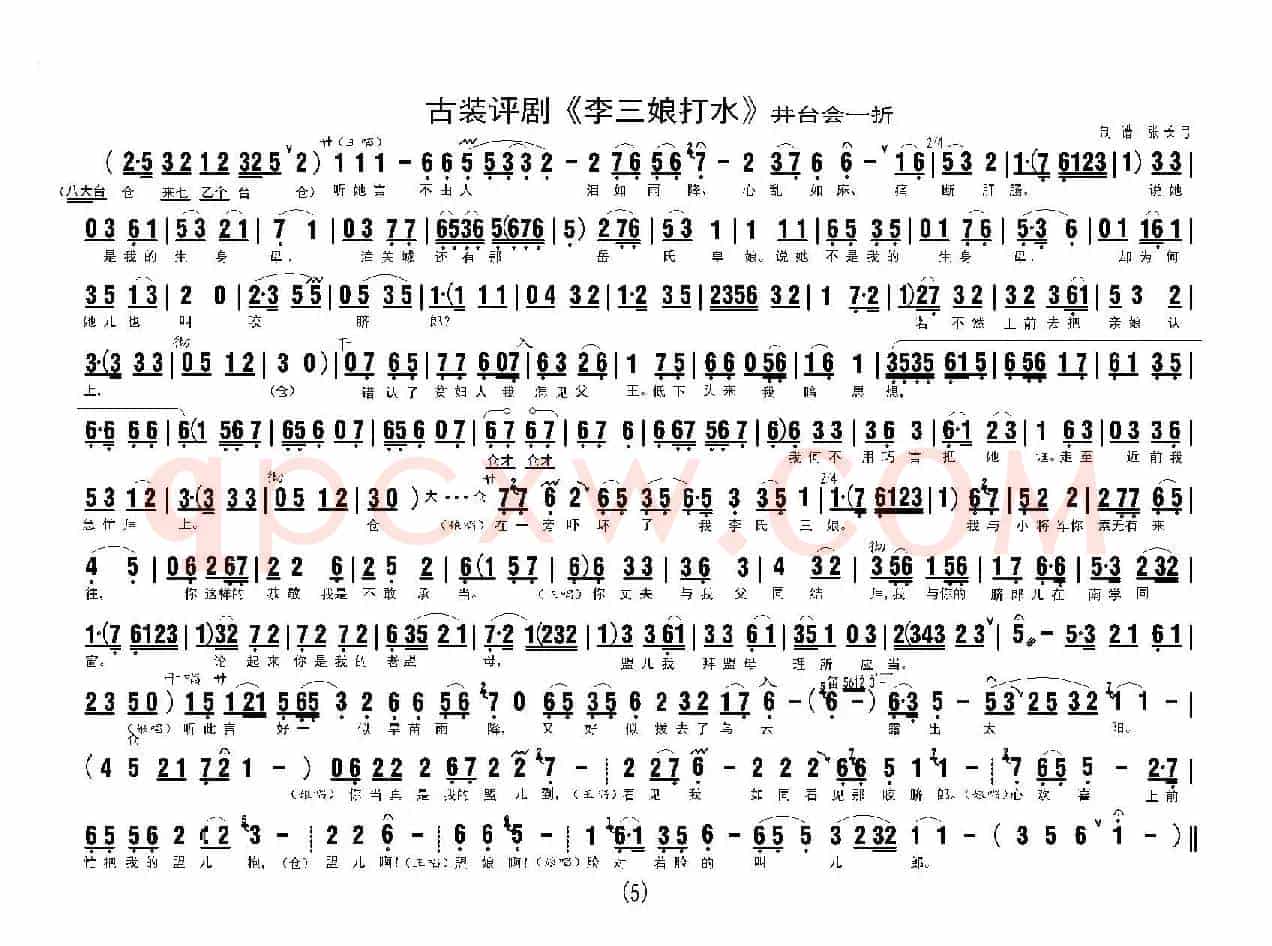 古装评剧《李三娘打水》井台会一折
制谱 张长弓
廾(王唱) 2/4
(2·5 32 12 325 2) 1 1 1 - 6 6 5 5 3 3 2 - 2 76 56 7 - 2 37 6 6 - 16 | 53 2 | 1·(7 6123 | 1) 33 |
(八大台 仓 来七 乙个 台 仓) 听她言 不由人 泪如雨降、 心乱如麻、 痛断肝肠。 说她
03 61 | 53 21 | 7 1 | 03 77 | 6536 5(676 | 5) 276 | 53 1 | 1 11 | 65 35 | 02 76 | 5·3 6 | 02 161 |
是我的生身母, 潼关城还有那 岳氏皇娘。说她不是我的生身母, 却为何
35 13 | 2 0 | 2·3 55 | 05 35 | 1·(1 11 | 04 32 | 1·2 35 | 2356 32 | 1 7·2 | 1)27 32 | 32 361 | 53 2 |
她儿也叫咬脐郎? 若不然上前去把亲娘认
彻
3·(3 33 | 05 12 | 30) | 07 65 | 77 607 | 63 26 | 1 75 | 66 056 | 16 1 | 3535 615 | 656 17 | 61 35 |
上, (仓) 错认了贫妇人我怎见父王。低下头来我暗思想,
6·6 66 | 6(1 567 | 65 607 | 65 607 | 67 67 | 67 6 | 667 567 | 6)6 33 | 36 3 | 6·1 23 | 1 63 | 03 36 |
仓才 仓才 我何不用巧言把她诓。走至近前我
彻 廾 2/4
53 12 | 3·(3 33 | 05 12 | 30 ) 大··· 仓 77 6 2 65 35 6·5 3 3 35 2 | 1·(7 6123 | 1) 67 | 2 77 65 |
急忙拜上。 仓 (娘唱)在一旁吓坏了 我李氏三娘。 我与小将军你素无有来
彻
4 5 | 06 267 | 22 6 | 25 2 | 6(1 57 | 6)6 33 | 56 3 | 4 32 | 356 156 | 17 6·6 | 5·3 232 |
往, 你这样的恭敬我是不敢承当。 (王唱)你丈夫与我父同结拜,我与你的脐郎儿在南学同
1·(7 6123 | 1)32 72 | 72 72 | 635 21 | 7·2 1(232 | 1)3 361 | 33 61 | 351 03 | 2(343 23 | 5 - 5·3 21 61
窗。 论起来你是我的老盟母, 盟儿我拜盟母理所应当。
23 50 ) 15 121 5 65 3 2 66 22 7 0 65 35 32 17 6 - (6 -) 6·3 5 5 3 2 5 3 2 1 1 - |
(娘唱)听此言好一似旱苗雨降, 又好似拨去了乌云 露出太阳。
仓
(4 5 21 72 1 - ) 06 22 2 67 2 2 5 - 2 27 6 - 2 2 2 66 5 1 7 - 7 65 5 - 2·7 |
(娘唱)你当真是我的盟儿到,(王唱)看见我 如同看见那咬脐郎。(娘唱)心欢喜 上前
65 56 2 12 3 - 2 2 6 - 66 5 - 1 6·1 35 5 6 - 65 5 3 232 1 1 - ( 3 5 6 1 - )‖
忙把我的盟儿抱,(仓)盟儿啊!(王唱)盟娘啊!(娘唱)脸对着脸的叫儿郎。
(5)
qpcxw.com